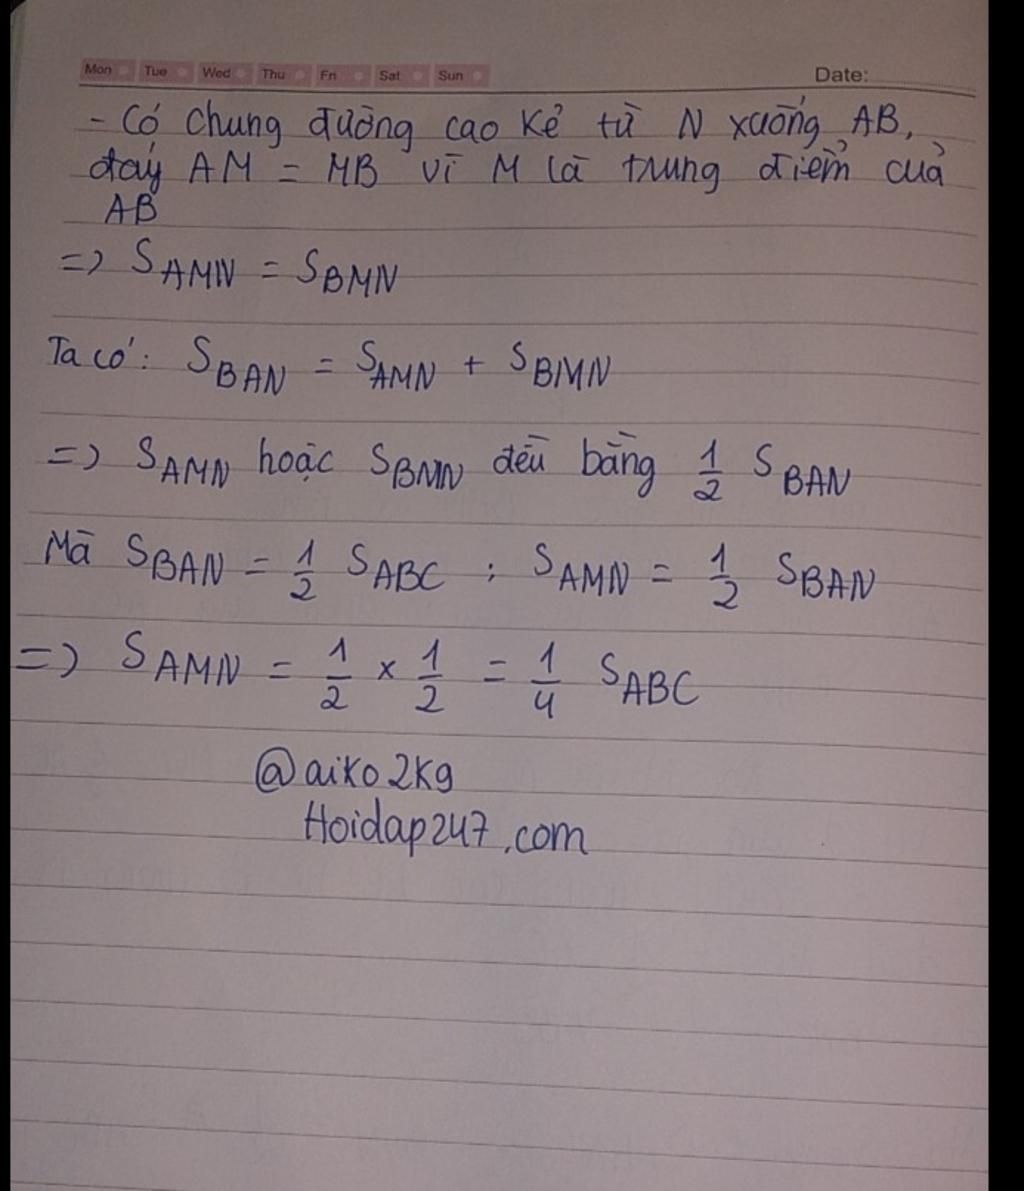 Mon Tue Wed Thu Fri Sat Sun Date:
- Có chung đường cao kẻ từ N xuống AB,
đáy AM = MB vì M là trung điểm của
AB
=> S AMN = S BMN
Ta có: S BAN = S AMN + S BMN
=> S AMN hoặc S BMN đều bằng 1/2 S BAN
Mà S BAN = 1/2 S ABC ; S AMN = 1/2 S BAN
=> S AMN = 1/2 x 1/2 = 1/4 S ABC
@aiko2kg
Hoidap247.com